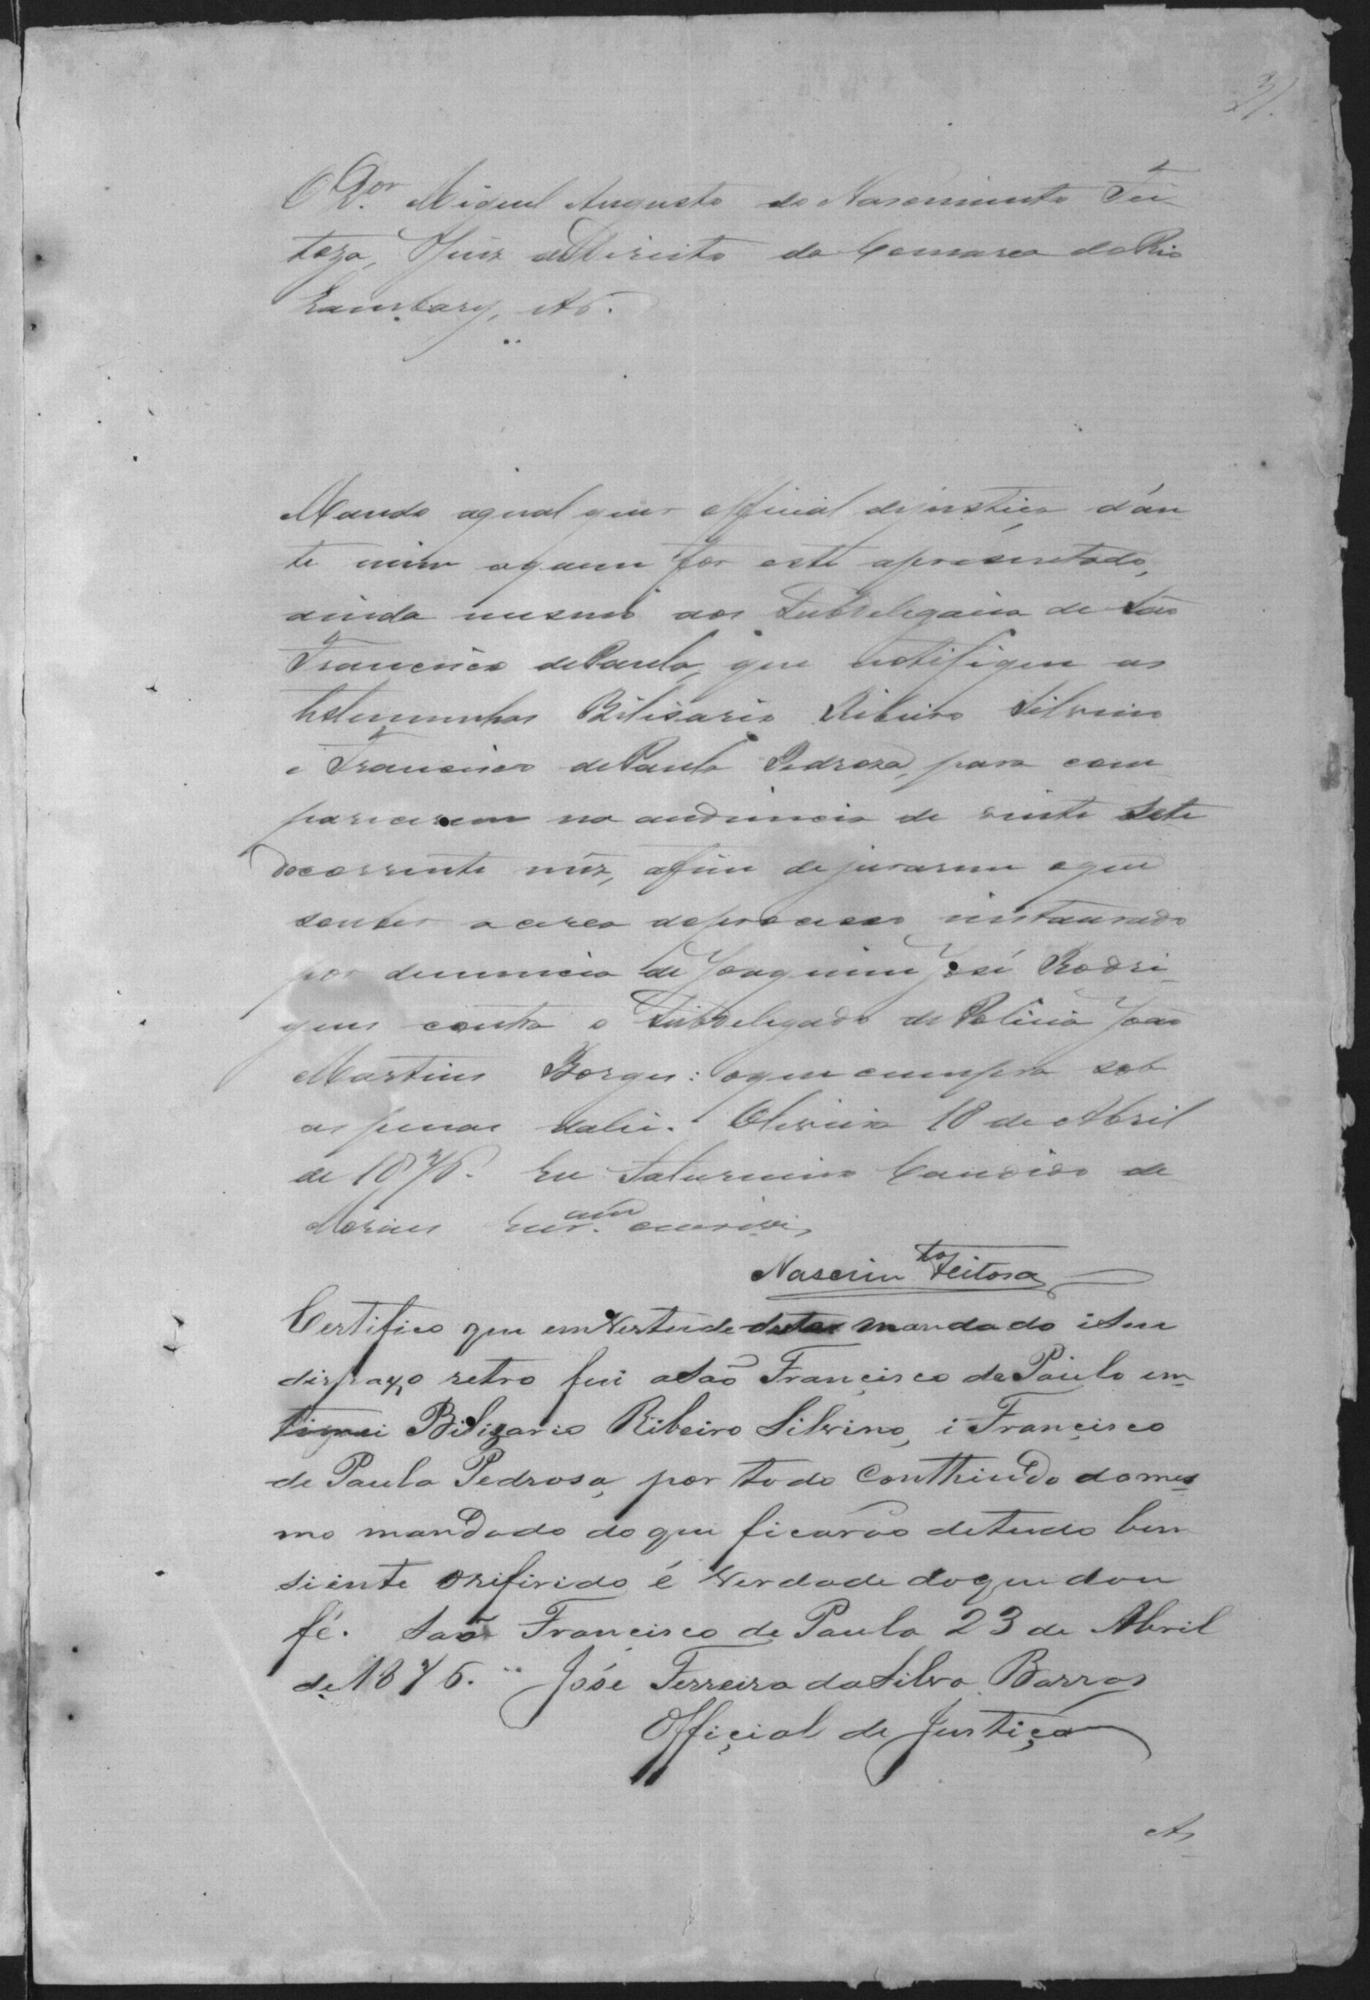 31.
O Dor. Miguel Augusto do Nascimento Fei-
toza, Juiz de Direito da Comarca do Rio
Lambary, etc.
Mando aqual quer official dejustiça d'an
te mim aquem for este apresentado,
ainda mesmo aos Subdelegacia de São
Francisco de Paula, que notifique as
testemunhas Bilisario Ribeiro Silvino
e Francisco de Paula Pedroza, para com
parecerem na audiencia de vinte sete
docorrente mez, afim dejurarem oque
souber acerca doprocesso instaurado
por denuncia de Joaquim José Rodri-
gues contra o Subdelegado de Policia João
Martins Borges: oque cumpra sob
as penas dalei. Oliveira 18 de Abril
de 1876. Eu Saturnino Candido de
Moraes Escr.am escrevi,
Nascim.to Feitosa
Certifico que em Vertude deste mandado i Seu
dispaxo retro fui a São Francisco de Paulo em
timei Biligario Ribeiro Silvino, i Francisco
de Paula Pedrosa, por todo Conthiudo do mes
mo mandado do qui ficarão de tudo bem
siente o rifirido é Verdade do que dou
fé. São Francisco de Paula 23 de Abril
de 1876. José Ferreira da Silva Barros
Official de Justiça